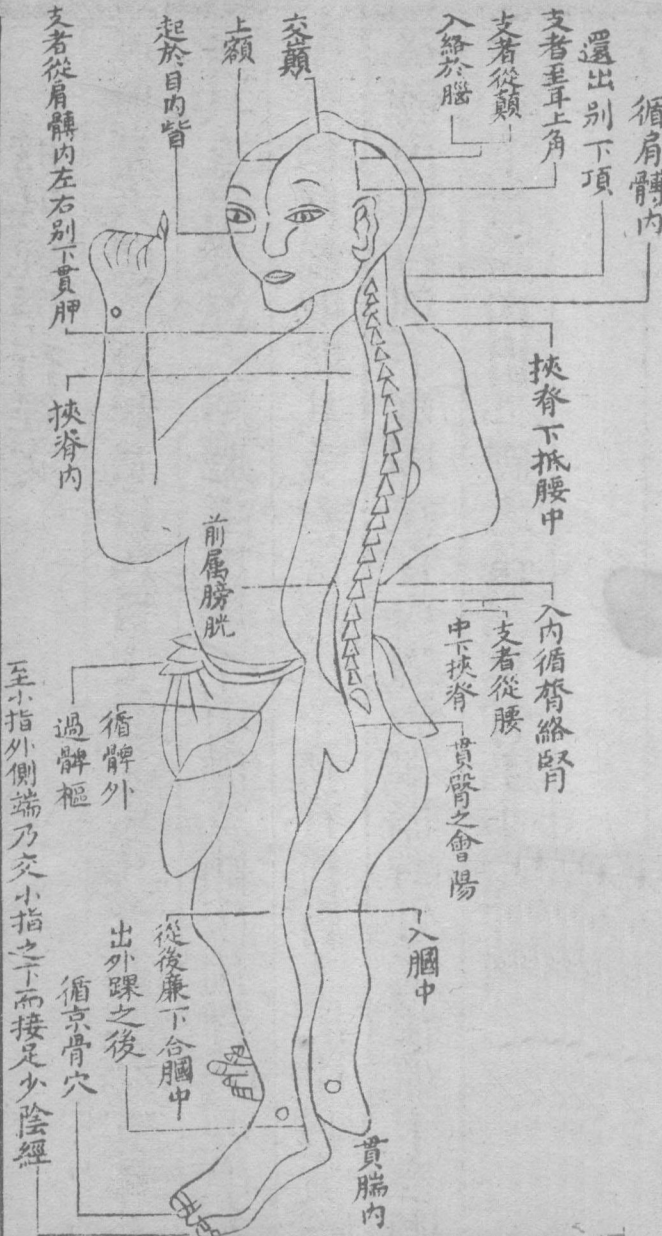 循肩髆内
還出别下項
支者至耳上角
支者從顛
入絡於腦
交巔
上額
起於目内眥
支者從肩髆内左右别下貫胛
挾脊内
挾脊下抵腰中
前属膀胱
入内循膂絡腎
支者從腰
中下挾脊
貫臀之會陽
循髀外
過髀樞
至小指外側端乃交小指之下而接足少陰經
入膕中
從後廉下合膕中
出外踝之後
循京骨穴
貫腨内